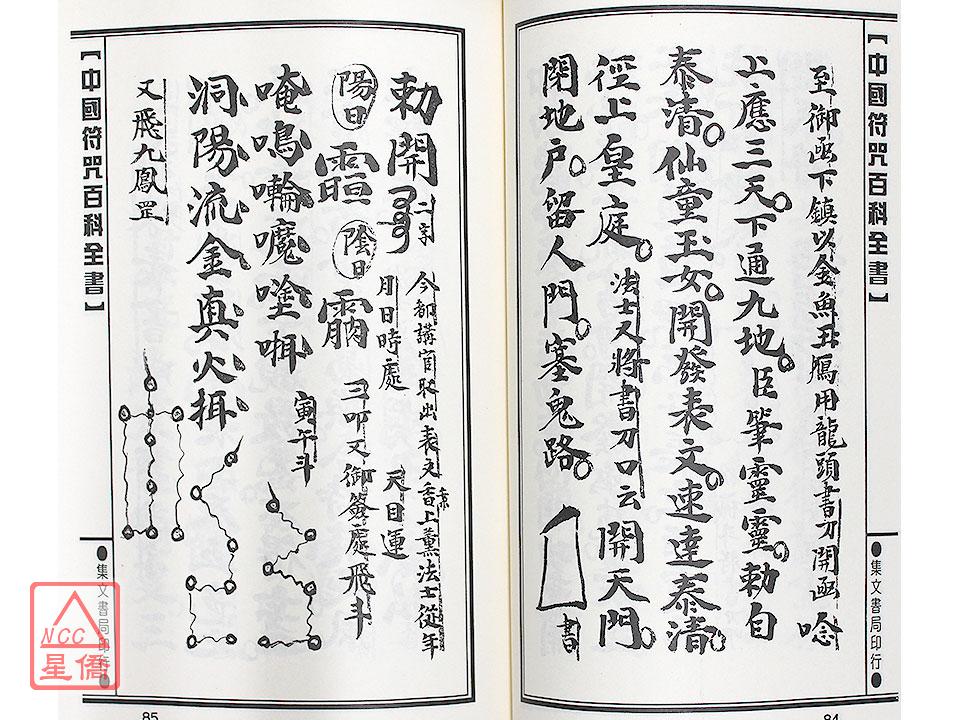 【中國符咒百科全書】
至御函下鎮以金魚玉鴈用龍頭書刀開函唸
上應三天。下通九地。臣筆靈靈。勅自
泰清。仙童玉女。開發表文。速達泰清。
徑上皇庭。法士又將書刀口云開天門。
閉地戶。留人門。塞鬼路。書
●集文書局印行●
84
勅開二字今都講官取出表文香上薰法士從年
月日時處天目運
陽日陰日三叩又御簽處飛斗
唵鳴㘕魔塗㖿寅午斗
洞陽流金真火
又飛九鳳罡
【中國符咒百科全書】
●集文書局印行●
85
NCC
星僑